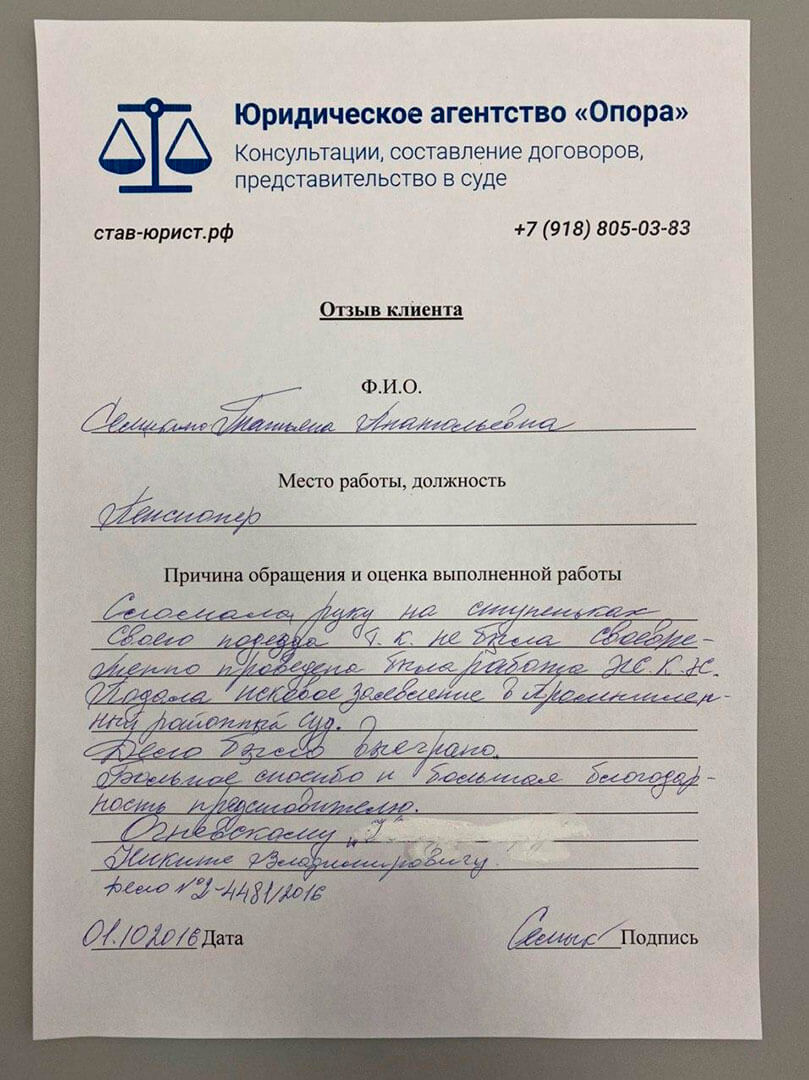 Юридическое агентство «Опора»
Консультации, составление договоров,
представительство в суде
став-юрист.рф
+7 (918) 805-03-83
Отзыв клиента
Ф.И.О.
Татьяна Анатольевна
Место работы, должность
Пенсионер
Причина обращения и оценка выполненной работы
Сломала руку на ступеньках
своего подезда т.к. не была своевре-
менно проведена была работа Ж.К.Х.
Подала исковое заявление в Промышлен-
ный районный суд.
Дело было выеграно.
Большое спосибо и большая благодар-
ность представителю.
Огневскому
Никите Владимировичу.
дело №2-4481/2016
01.10.2016 Дата
Подпись